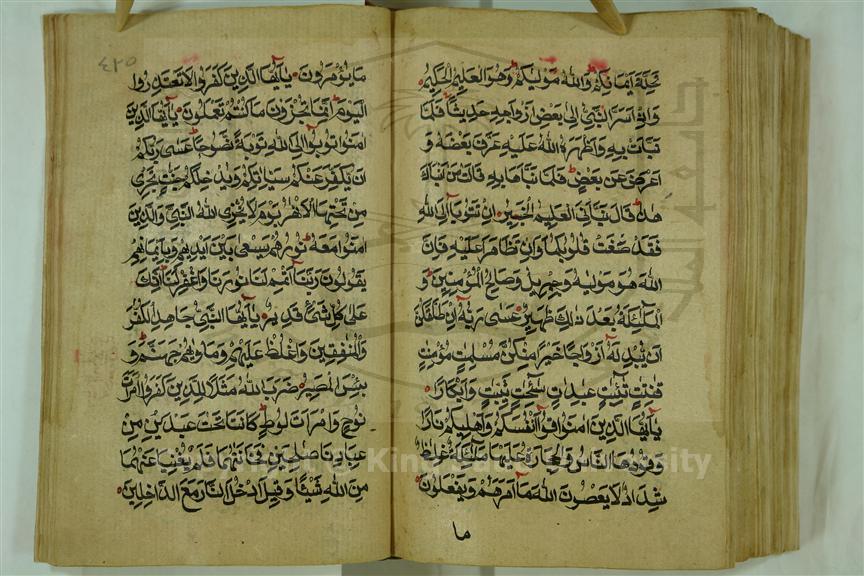 تحلة ايمانكم والله موليكم وهو العليم الحكيم
واذ اسر النبي الى بعض ازواجه حديثا فلما
نبات به واظهره الله عليه عرف بعضه و
اعرض عن بعض فلما نباها به قالت من انباك
هذا قال نباني العليم الخبير ان تتوبا الى الله
فقد صغت قلوبكما وان تظاهرا عليه فان
الله هو موليه وجبريل وصالح المؤمنين و
الملئكة بعد ذلك ظهير عسى ربه ان طلقكن
ان يبدله ازواجا خيرا منكن مسلمت مؤمنت
قنتت تئبت عبدت سئحت ثيبت وابكارا
يايها الذين امنوا قوا انفسكم واهليكم نارا
وقودها الناس والحجارة عليها ملئكة غلاظ
شداد لا يعصون الله ما امرهم ويفعلون
ما
٤٢٥
ما يؤمرون يايها الذين كفروا لا تعتذروا
اليوم انما تجزون ما كنتم تعملون يايها الذين
امنوا توبوا الى الله توبة نصوحا عسى ربكم
ان يكفر عنكم سياتكم ويدخلكم جنت تجري
من تحتها الانهر يوم لا يخزي الله النبي والذين
امنوا معه نورهم يسعى بين ايديهم وبايمانهم
يقولون ربنا اتمم لنا نورنا واغفر لنا انك
على كل شئ قدير يايها النبي جاهد الكفار
والمنفقين واغلظ عليهم وماويهم جهنم و
بئس المصير ضرب الله مثلا للذين كفروا امرات
نوح وامرات لوط كانتا تحت عبدين من
عبادنا صالحين فخانتهما فلم يغنيا عنهما
من الله شيئا وقيل ادخلا النار مع الداخلين